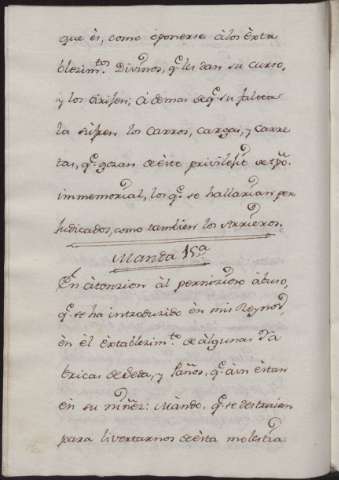 que ès, como oponerse àlos èxta
blezim.tos Divinos, q.e les dan su curso,
y los dirijen; à demas de q.e su falta
la suplen los carros, cargas, y carre
tas, q.e gozan de èste privileg.o de tpõ.
immemorial, los q.e se hallarian per
judicados, como tambien los Arrieros.
Manda 15.a
En àtenzion àl pernizioso àbuso,
q.e se ha introduzido èn mis Reynos,
èn èl èxtablezim.to de àlgunas Fa
bricas de seda, y Paños, q.e àun èstan
èn su niñez: Mando, q.e se destruian
para livertarnos de èsta molestia